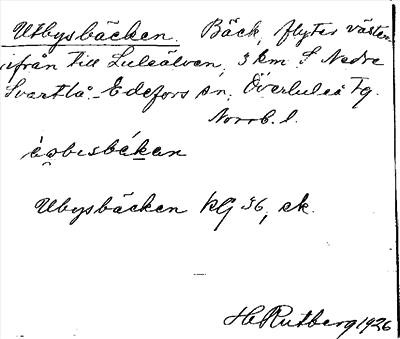 Utbysbäcken. Bäck, flyter väster-
ifrån till Luleälven, 3 km S Nedre
Svartlå. Edefors sn. Överluleå Tg.
Norrb. l.
Ubysbäcken kG 36, ek.
H Rutberg 1926